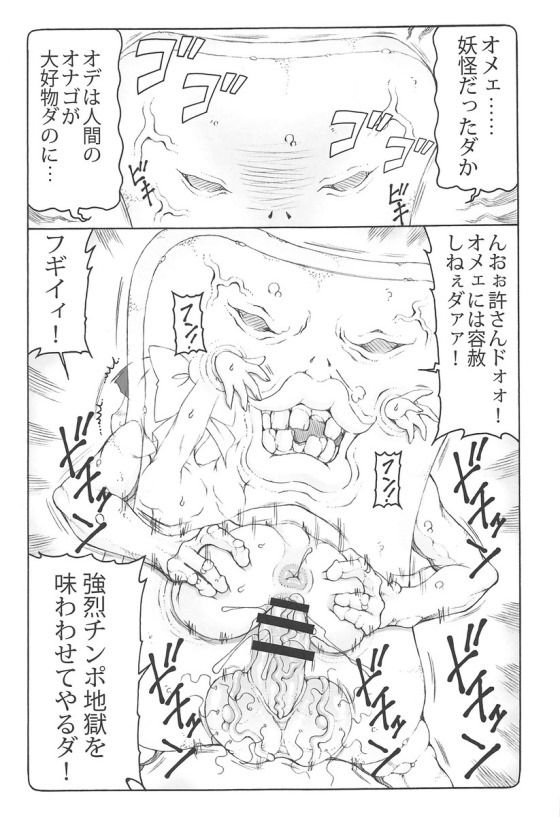 オメェ……
妖怪だったダか
オデは人間の
オナゴが
大好物ダのに…
ゴゴゴ
ゴゴゴ
ビキ
ビキ
んおぉ許さんドォォ！
オメェには容赦
しねぇダァァ！
フギイィ！
フン！
フン！
ドチュン
ドチュン
ドチュン
ドチュン
強烈チンポ地獄を
味わわせてやるダ！